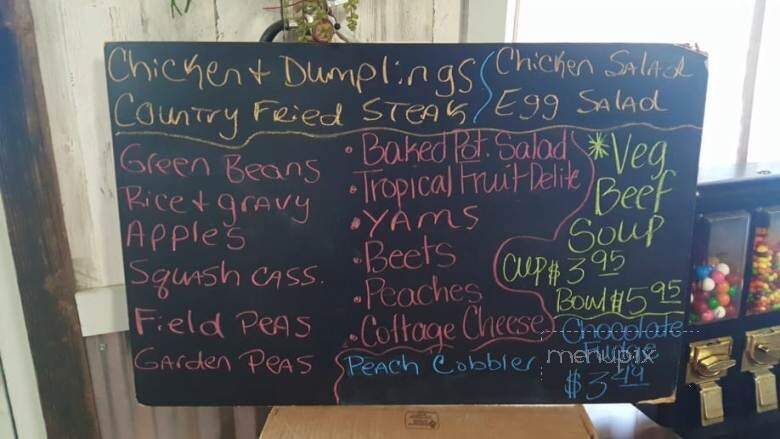 Chicken + Dumplings
Country Fried Steak
Chicken Salad
Egg Salad
Green Beans
Rice + gravy
Apple's
Squash Cass.
Field Peas
Garden Peas
• Baked Pot. Salad
• Tropical Fruit Delite
• Yams
• Beets
• Peaches
• Cottage Cheese
Peach Cobbler
*Veg
Beef
Soup
Cup $3.95
Bowl $5.95
Chocolate
Fudge
$3.49
menupix